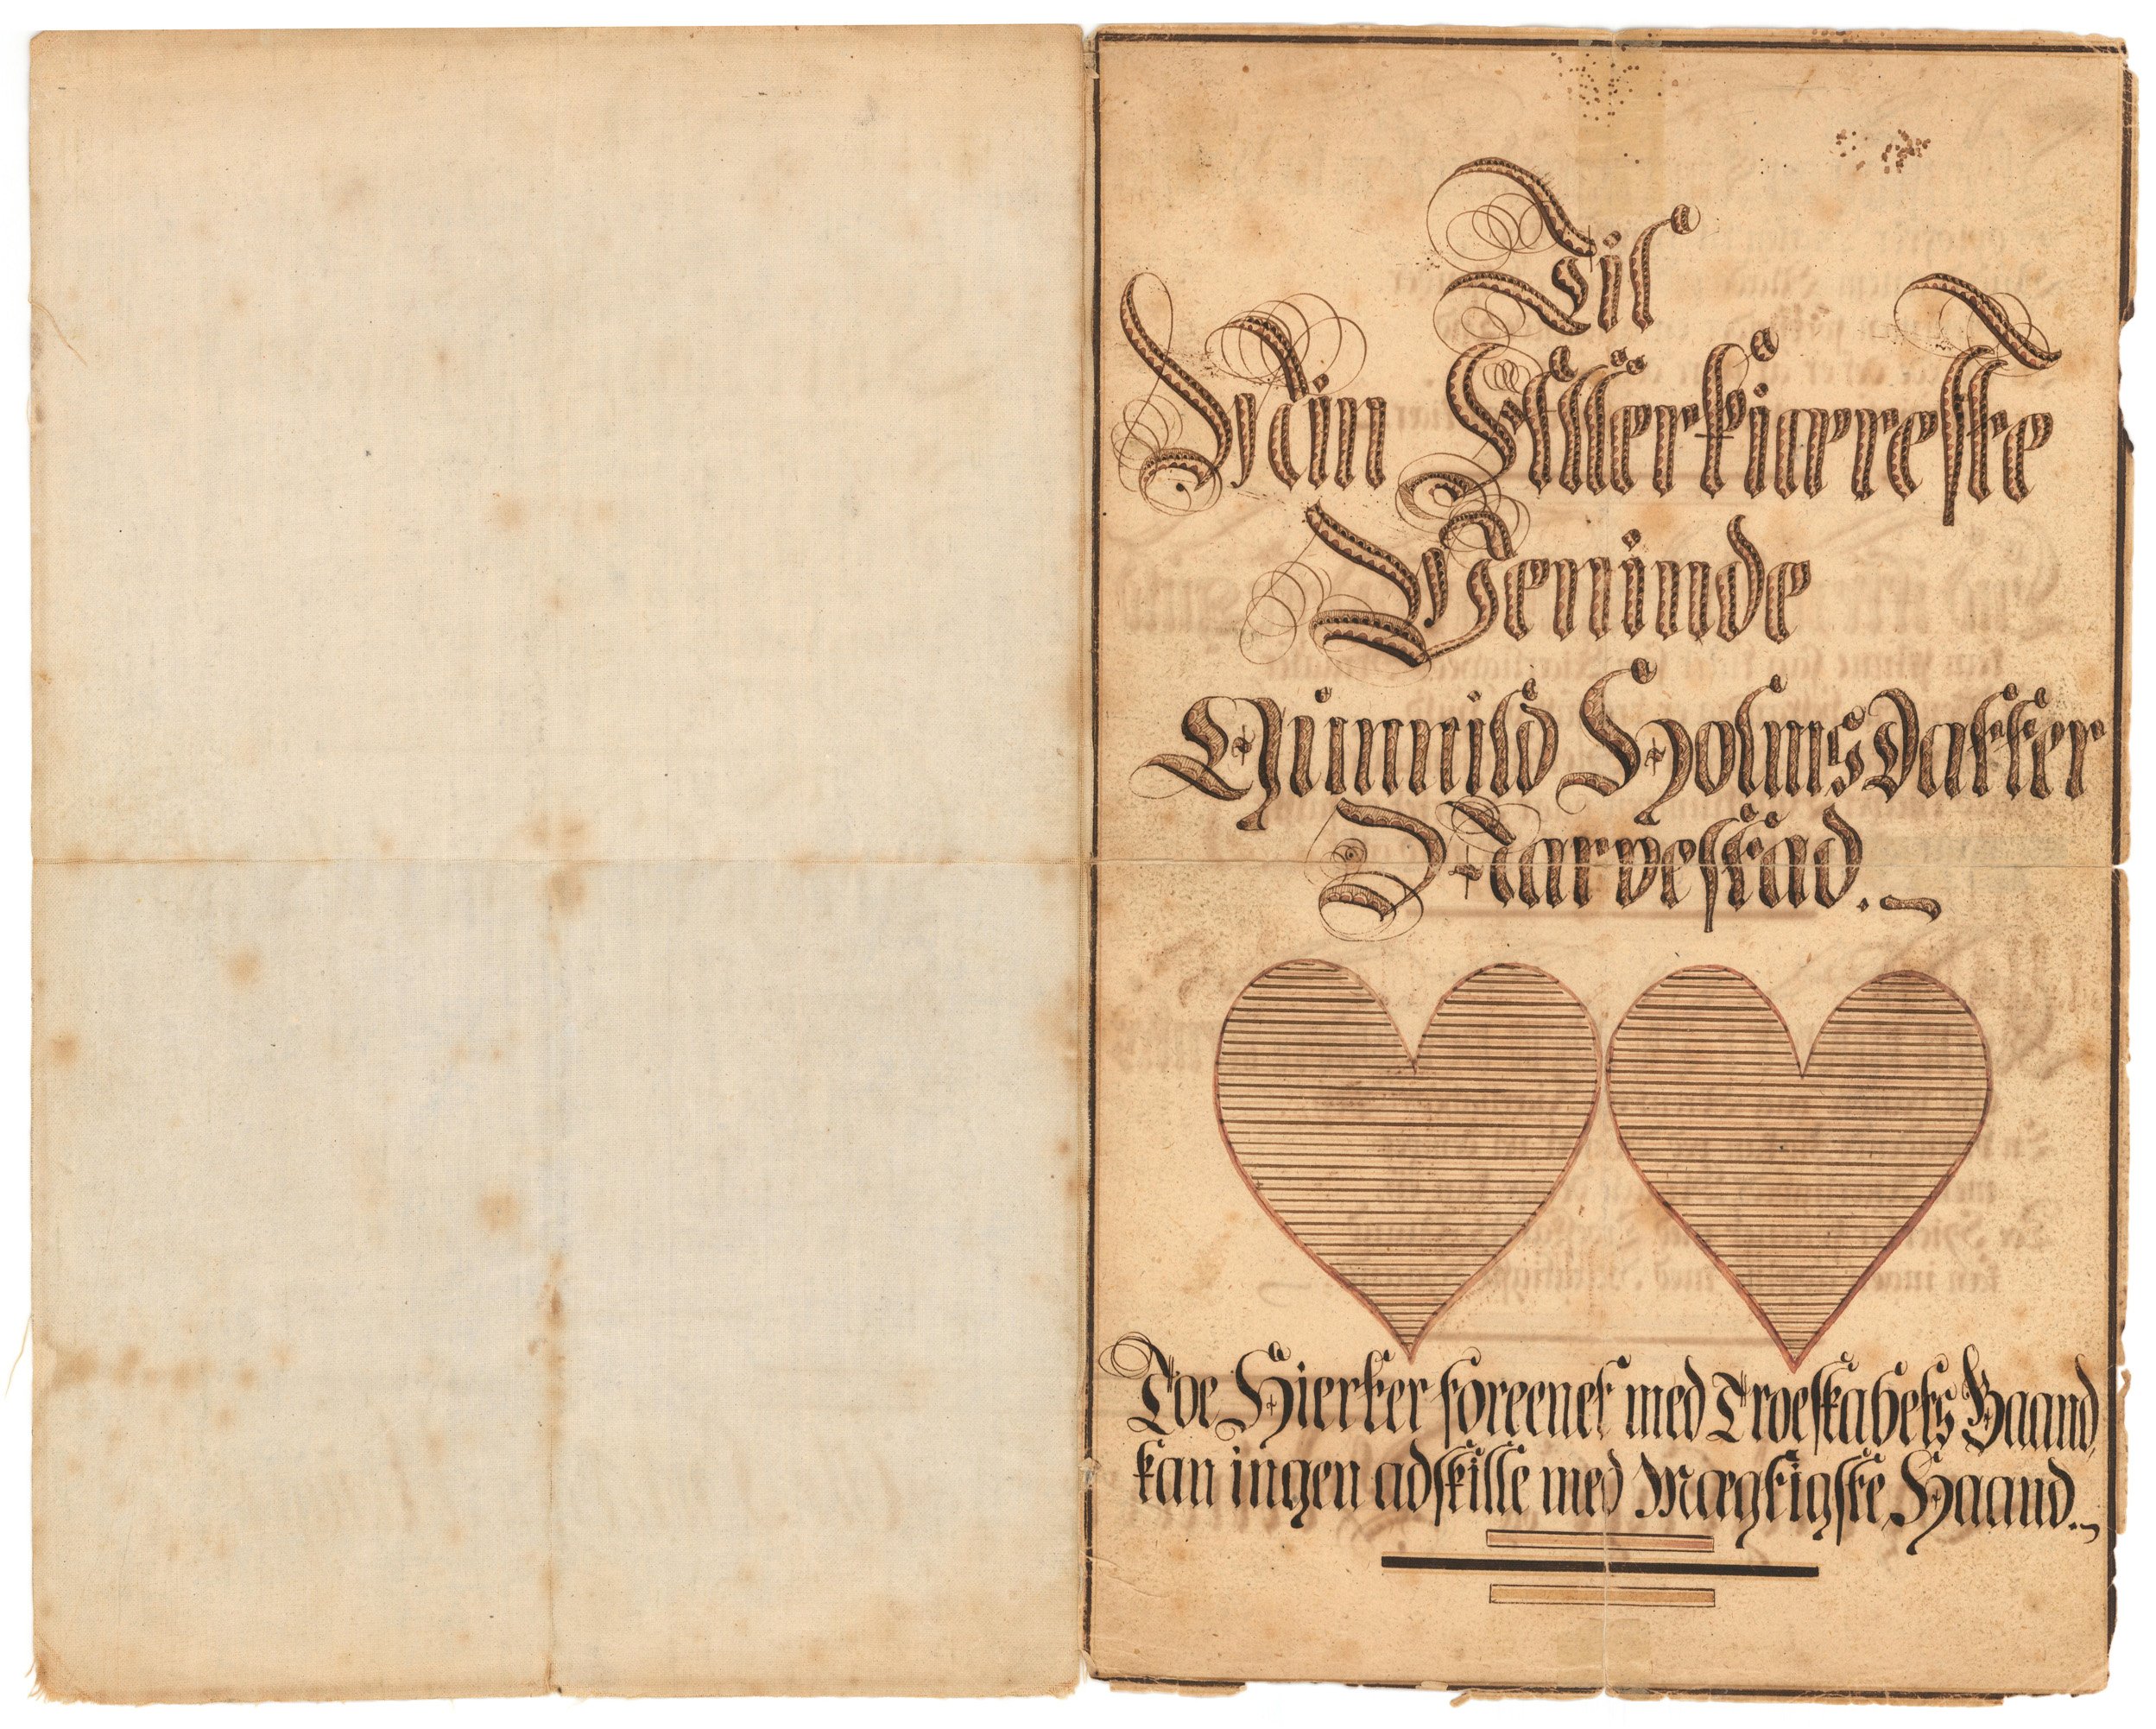 Til
Min Allerkiæreste
Veninde
Gunnild HolmsDatter
Narvestad.
Toe Hierter foreenet med Troeskabets Baand,
kan ingen adskille med Mægtigste Haand.